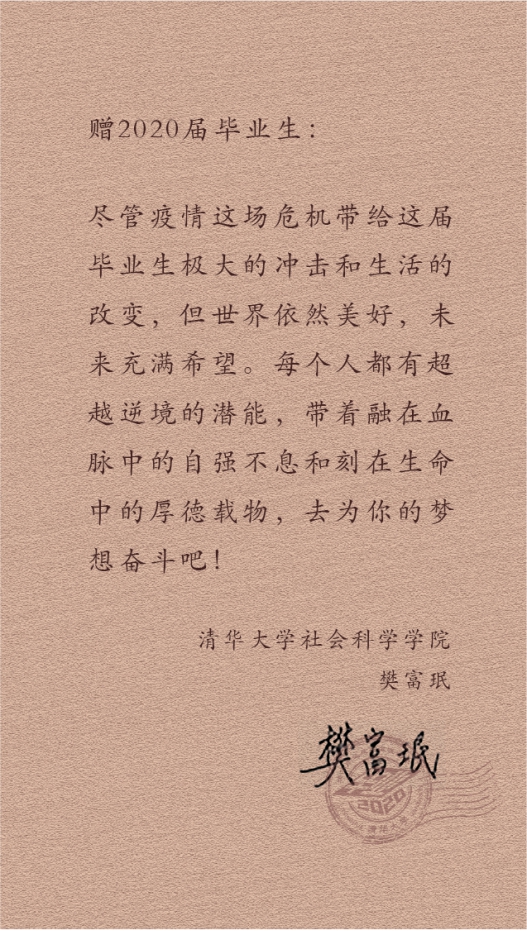 赠2020届毕业生：
尽管疫情这场危机带给这届
毕业生极大的冲击和生活的
改变，但世界依然美好，未
来充满希望。每个人都有超
越逆境的潜能，带着融在血
脉中的自强不息和刻在生命
中的厚德载物，去为你的梦
想奋斗吧！
清华大学社会科学学院
樊富珉
樊富珉
2020
清华大学